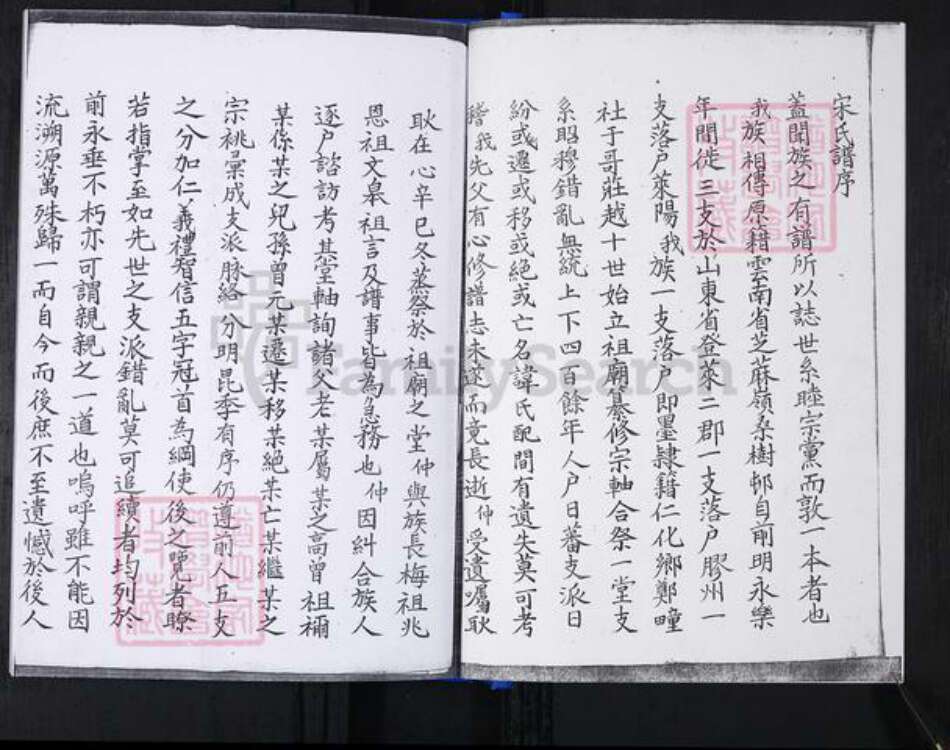 宋氏譜序
蓋聞族之有譜所以誌世系睦宗黨而敦一本者也
我族相傳原籍雲南省芝麻嶺桑樹邨自前明永樂
年間徙三支於山東省登萊二郡一支落户膠州一
支落户萊陽我族一支落户即墨隷籍仁化鄉鄭疃
社于哥莊越十世始立祖廟纂修宗軸合祭一堂支
系昭穆錯亂無統上下四百餘年人户日蕃支派日
紛或遷或移或絕或亡名諱氏配間有遺失莫可考
稽我先父有心修譜志未遂而竟長逝仲受遺囑耿
耿在心辛巳冬蒸祭於祖廟之堂仲與族長梅祖兆
恩祖文皋祖言及譜事皆為急務也仲因糾合族人
逐户諮訪考其堂軸詢諸父老某屬某之高曾祖禰
某係某之兒孫曾元某遷某移某絕某亡某繼某之
宗祧彙成支派脉絡分明昆季有序仍遵前人五支
之分加仁義禮智信五字冠首為綱使後之覽者瞭
若指掌至如先世之支派錯亂莫可追續者均列於
前永垂不朽亦可謂親親之一道也嗚呼雖不能因
流溯源萬殊歸一而自今而後庶不至遺憾於後人
FamilySearch